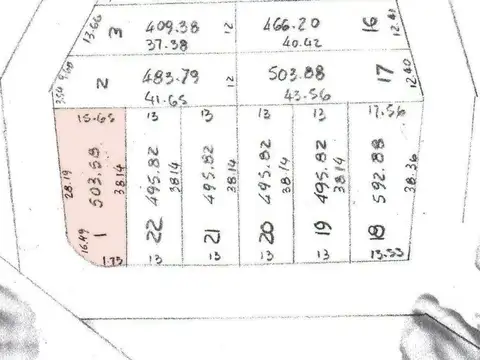 13.66 3 409.38 12 466.20 16 12.41
37.38 40.42
9.60 2 483.79 12 503.88 17 12.40
3.54 41.65 43.56
15.65 13 13 13 13 17.56
28.19 503.59 38.14 495.82 38.14 495.82 38.14 495.82 38.14 495.82 38.14 592.88 38.36
16.49 1 22 21 20 19 18
1.73 13 13 13 13 13.53